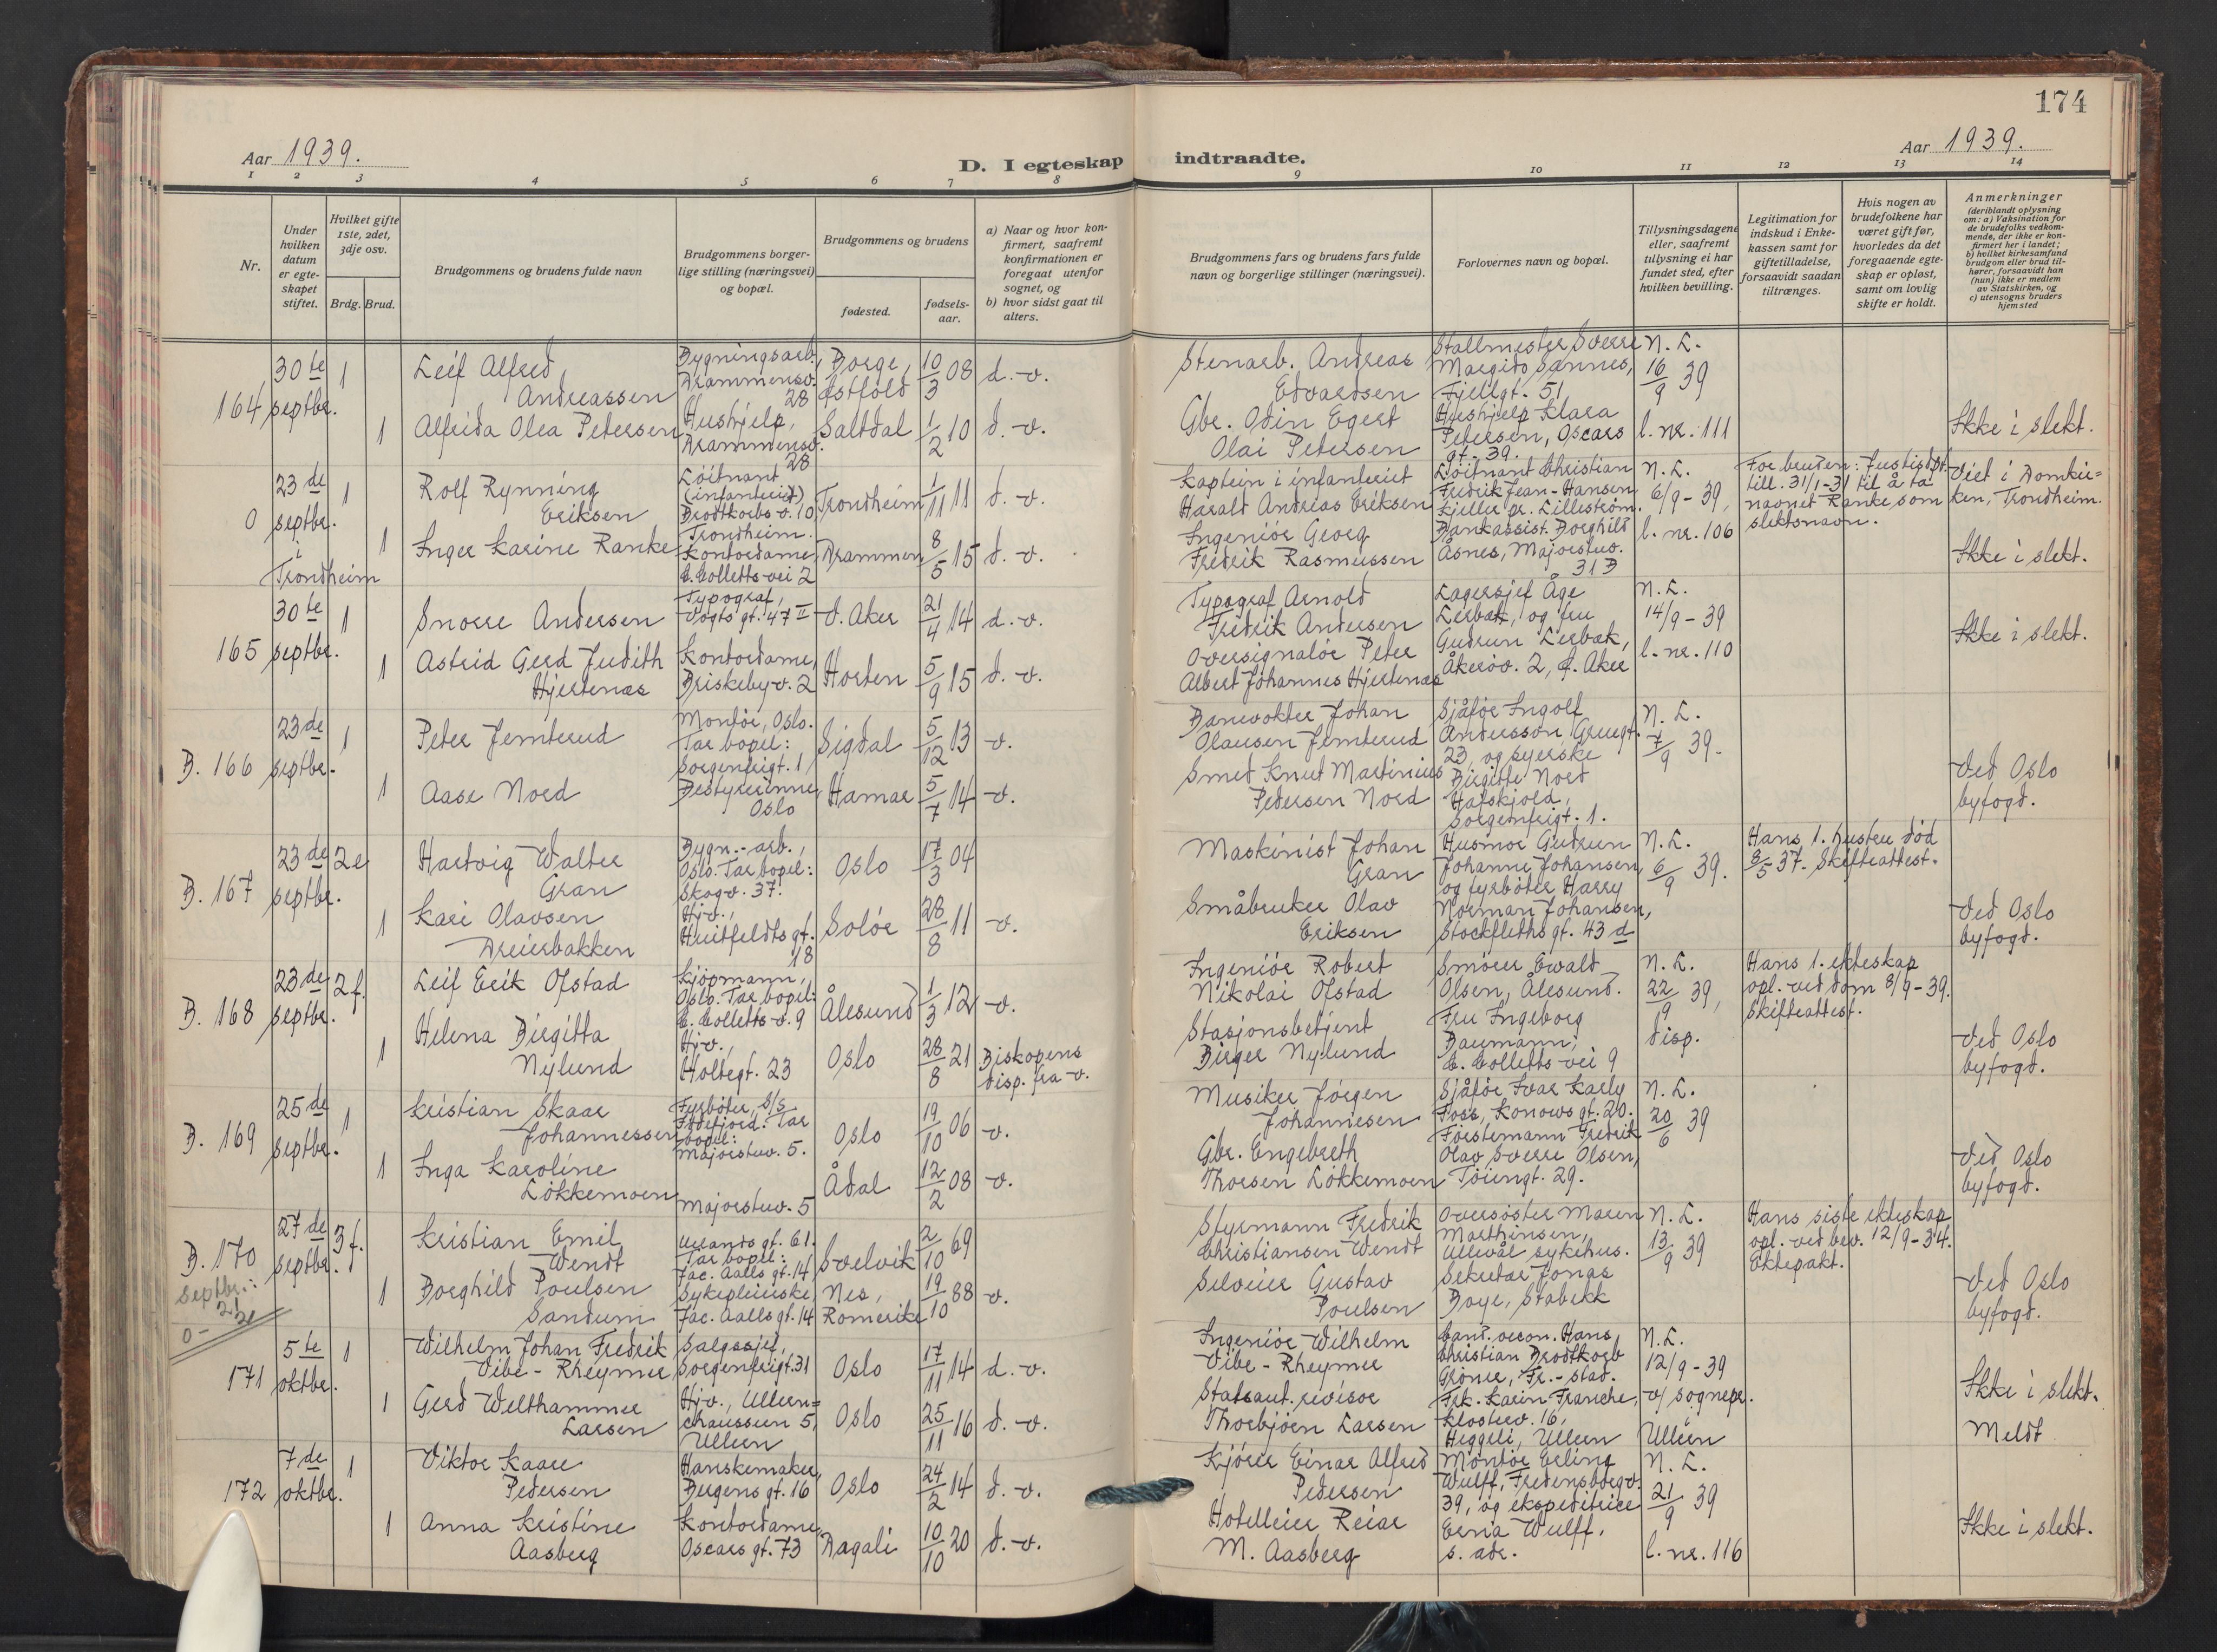 174
Aar 1939.
D. I egteskap indtraadte.
Aar 1939.
1 2 3 4 5 6 7 8 9 10 11 12 13 14
Nr.
Under hvilken datum er egteskapet stiftet.
Hvilket gifte 1ste, 2det, 3dje osv.
Brdg. Brud.
Brudgommens og brudens fulde navn
Brudgommens borgerlige stilling (næringsvei) og bopæl.
Brudgommens og brudens
fødested.
fødselsaar.
a) Naar og hvor konfirmert, saafremt konfirmationen er foregaat utenfor sognet, og
b) hvor sidst gaat til alters.
Brudgommens fars og brudens fars fulde navn og borgerlige stillinger (næringsvei).
Forlovernes navn og bopæl.
Tillysningsdagene eller, saafremt tillysning ei har fundet sted, efter hvilken bevilling.
Legitimation for indskud i Enkekassen samt for giftetilladelse, forsaavidt saadan tiltrænges.
Hvis nogen av brudefolkene har været gift før, hvorledes da det foregaaende egteskap er opløst, samt om lovlig skifte er holdt.
Anmerkninger
(deriblandt oplysning om: a) Vaksination for de brudefolks vedkommende, der ikke er konfirmert her i landet; b) hvilket kirkesamfund brudgom eller brud tilhører, forsaavidt han (hun) ikke er medlem av Statskirken, og c) utensogns bruders hjemsted
164
30te septbr.
1
Leif Alfred Andreassen
Bygningsarb., Drammensv. 28
Borge, Østfold
10/3 08
d. - v.
Stenarb. Andreas Edvardsen
Stallmester Sverre Margido Sannes, Fjellgt. 51
N. L.
16/9 39
1
Alfrida Olea Petersen
Hushjelp, Drammensv. 28
Saltdal
1/2 10
d. - v.
Gbr. Odin Egert Olai Petersen
Hushjelp Klara Petersen, Oscars gt. 39.
l. nr. 111
Ikke i slekt.
0
23de septbr. i Trondheim
1
Rolf Rynning Eriksen
Löitnant (infanteriet) Brodtkorbs v. 10 Trondheim.
Trondheim
1/11 11
d. - v.
Kaptein i infanteriet Harald Andreas Eriksen
Löitnant Christian Fredrik Jean-Hansen, Kjeller pr. Lilleström.
N. L.
6/9 - 39,
For bruden: Justisdpt. till. 31/1-31 til å ta navnet Ranke som slektsnavn.
Viet i Domkirken, Trondheim.
1
Inger Karine Ranke
Kontordame, C. Colletts vei 2
Drammen
8/5 15
d. - v.
Ingeniör Georg Fredrik Rasmussen
Bankassist. Borghild Åsnes, Majorstuv. 31 B
l. nr. 106
Ikke i slekt.
165
30te septbr.
1
Snorre Andersen
Typograf, Vogts gt. 47 II
V. Aker
21/4 14
d. - v.
Typograf Arnold Fredrik Andersen
Lagersjef Åge Lerbæk, og fru Gudrun Lerbæk, Åkersv. 2, Ø. Aker
N. L.
14/9 - 39
Ikke i slekt.
1
Astrid Gerd Judith Hjertenæs
Kontordame, Briskebyv. 2
Horten
5/9 15
d. - v.
Oversignalör Peter Albert Johannes Hjertenæs
l. nr. 110
B. 166
23de septbr.
1
Peter Jemterud
Montör, Oslo. Tar bopel: Sorgenfrigt. 1
Sigdal
5/12 13
v.
Banevokter Johan Olausen Jemterud
Sjåför Ingolf Andersson, Gruegt. 23, og syerske Birgitte Nord Hafskjold, Sorgenfrigt. 1.
N. L.
7/9 39.
1
Aase Nord
Bestyrerinne, Oslo
Hamar
5/7 14
v.
Smed Knut Martinius Pedersen Nord
Ved Oslo byfogd.
B. 167
23de septbr.
2e
Hartvig Walter Gran
Bygn.-arb., Oslo. Tar bopel: Skogv. 37.
Oslo
17/3 04
Maskinist Johan Gran
Husmor Gudrun Johanne Johansen, og fyrböter Harry Norman Johansen, Stockfleths gt. 43 d
N. L.
6/9 39.
Hans 1. hustru död 8/5 37. Skifteattest.
1
Kari Olavsen Dreierbakken
Hjv., Huitfeldts gt. 18
Solör
28/8 11
v.
Småbruker Olav Eriksen
Ved Oslo byfogd.
B. 168
23de septbr.
2f.
Leif Erik Ofstad
Kjöpmann, Oslo. Tar bopel: C. Colletts v. 9
Ålesund
1/3 12
v.
Ingeniör Robert Nikolai Ofstad
Smörer Ewald Olsen, Ålesund.
N. L.
22/9 39, disp.
Hans 1. ekteskap opl. ved dom 8/9-39. Skifteattest.
1
Helena Birgitta Nylund
Hjv., Holtegt. 23
Oslo
28/8 21
Biskopens disp. fra v.
Stasjonsbetjent Birger Nylund
Fru Ingeborg Baumann, C. Colletts vei 9
Ved Oslo byfogd.
B. 169
25de septbr.
1
Kristian Skaar Johannessen
Fyrböter, S/S Idefjord. Tar bopel: Majorstuv. 5.
Oslo
19/10 06
v.
Musiker Jörgen Johannesen
Sjåför Ivar Karly Foss, Konows gt. 20.
N. L.
20/6 39
1
Inga Karoline Lökkemoen
Majorstuv. 5
Ådal
12/2 08
v.
Gbr. Engebreth Thorsen Lökkemoen
Förstemann Fredrik Olav Sverre Olsen, Töiengt. 29.
Ved Oslo byfogd.
B. 170
27de septbr.
3f.
Kristian Emil Wendt
Uelands gt. 61. Tar bopel: Jac. Aalls gt. 14
Svelvik
2/10 69
Styrmann Fredrik Christiansen Wendt
Oversöster Maren Marthinsen, Ullevål sykehus.
N. L.
13/9 39
Hans siste ekteskap opl. ved bev. 12/9-34. Ektepakt.
1
Borghild Poulsen Sandum
Sykepleierske, Jac. Aalls gt. 14
Nes, Romerike
19/10 88
v.
Selveier Gustav Poulsen
Sekretær Jonas Boye, Stabekk
Ved Oslo byfogd.
Septbr.:
21
0 -
171
5te oktbr.
1
Wilhelm Johan Fredrik Vibe-Rheymer
Salgssjef, Sorgenfrigt. 31
Oslo
17/11 14
d. - v.
Ingeniör Wilhelm Vibe-Rheymer
Cand. oecon. Hans Christian Brodtkorb Gröner, Fr.-stad.
N. L.
12/9 - 39 v/ sognepr. Ullern
1
Gerd Welthammer Larsen
Hjv., Ullernchausseen 5, Ullern
Oslo
25/11 16
d. - v.
Statsaut. revisor Thorbjörn Larsen
Frk. Karin Franche, Klosterv. 16, Heggeli, Ullern
Ikke i slekt.
Meldt
172
7de oktbr.
1
Viktor Kaare Pedersen
Hanskemaker, Bergens gt. 16
Oslo
24/2 14
d. - v.
Kjörer Einar Alfred Pedersen
Montör Erling Wulff, Fredensborgv. 39, og ekspeditrice Erna Wulff, s. adr.
N. L.
21/9 39
1
Anna Kristine Aasberg
Kontordame, Oscars gt. 73
Dagali
10/10 20
d. - v.
Hotelleier Reiar M. Aasberg
l. nr. 116
Ikke i slekt.